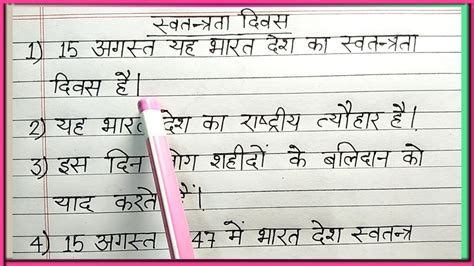 स्वतन्त्रता दिवस
1) 15 अगस्त यह भारत देश का स्वतन्त्रता
दिवस है।
2) यह भारत देश का राष्ट्रीय त्यौहार है।
3) इस दिन लोग शहीदों के बलिदान को
याद करते हैं।
4) 15 अगस्त 47 में भारत देश स्वतन्त्र